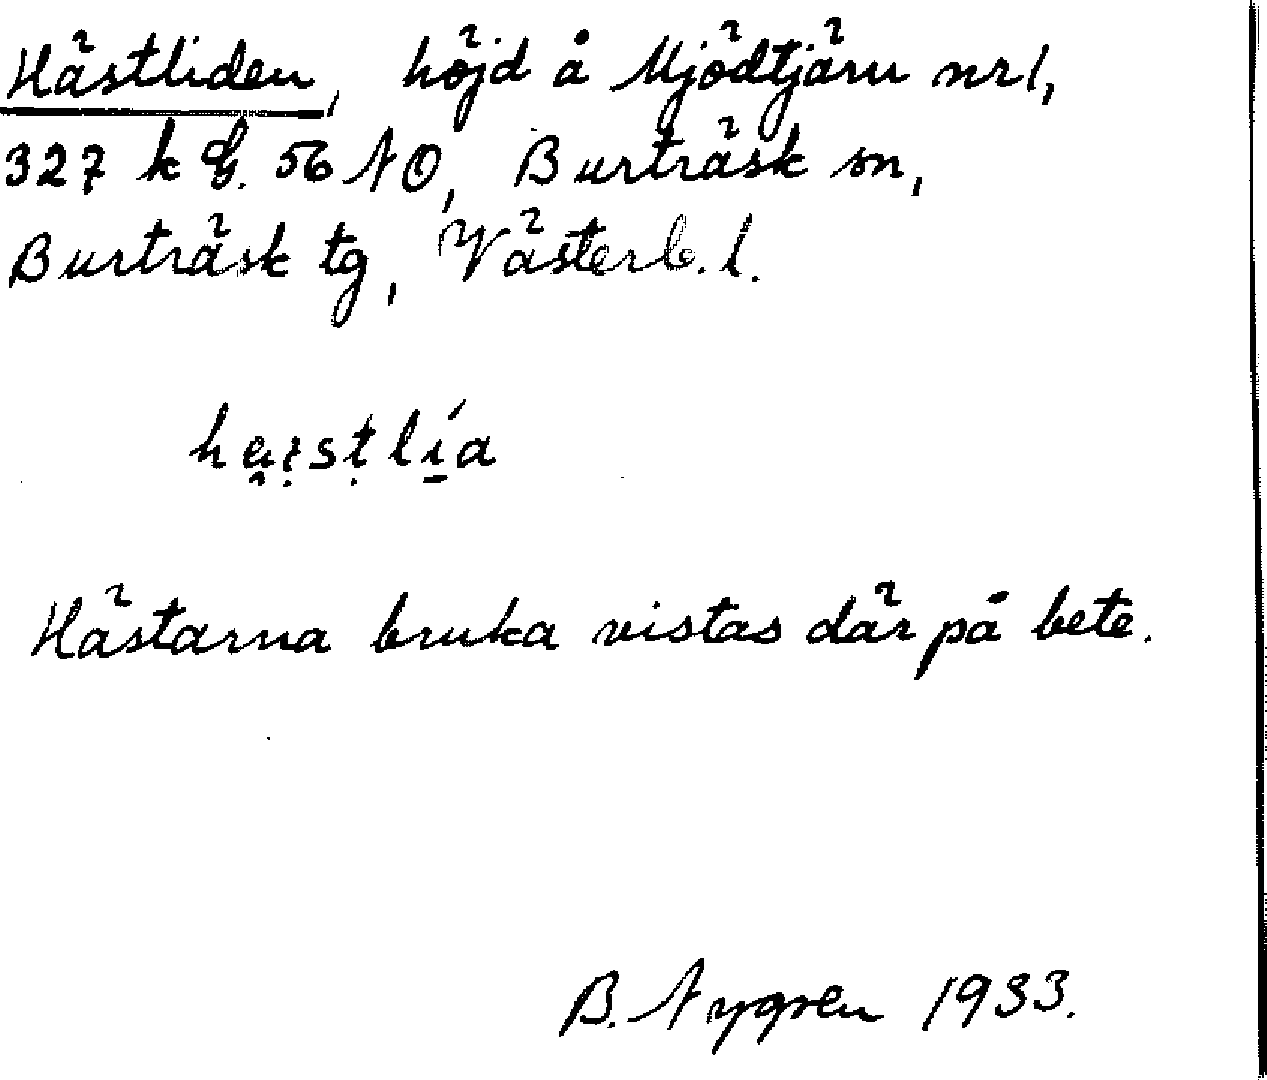 Hästliden, höjd å Mjödtjärn nr 1,
327 k G. 56 NO, Burträsk sn,
Burträsk tg, Västerb. l.
Hästarna bruka vistas där på bete.
B. Nygren 1933.